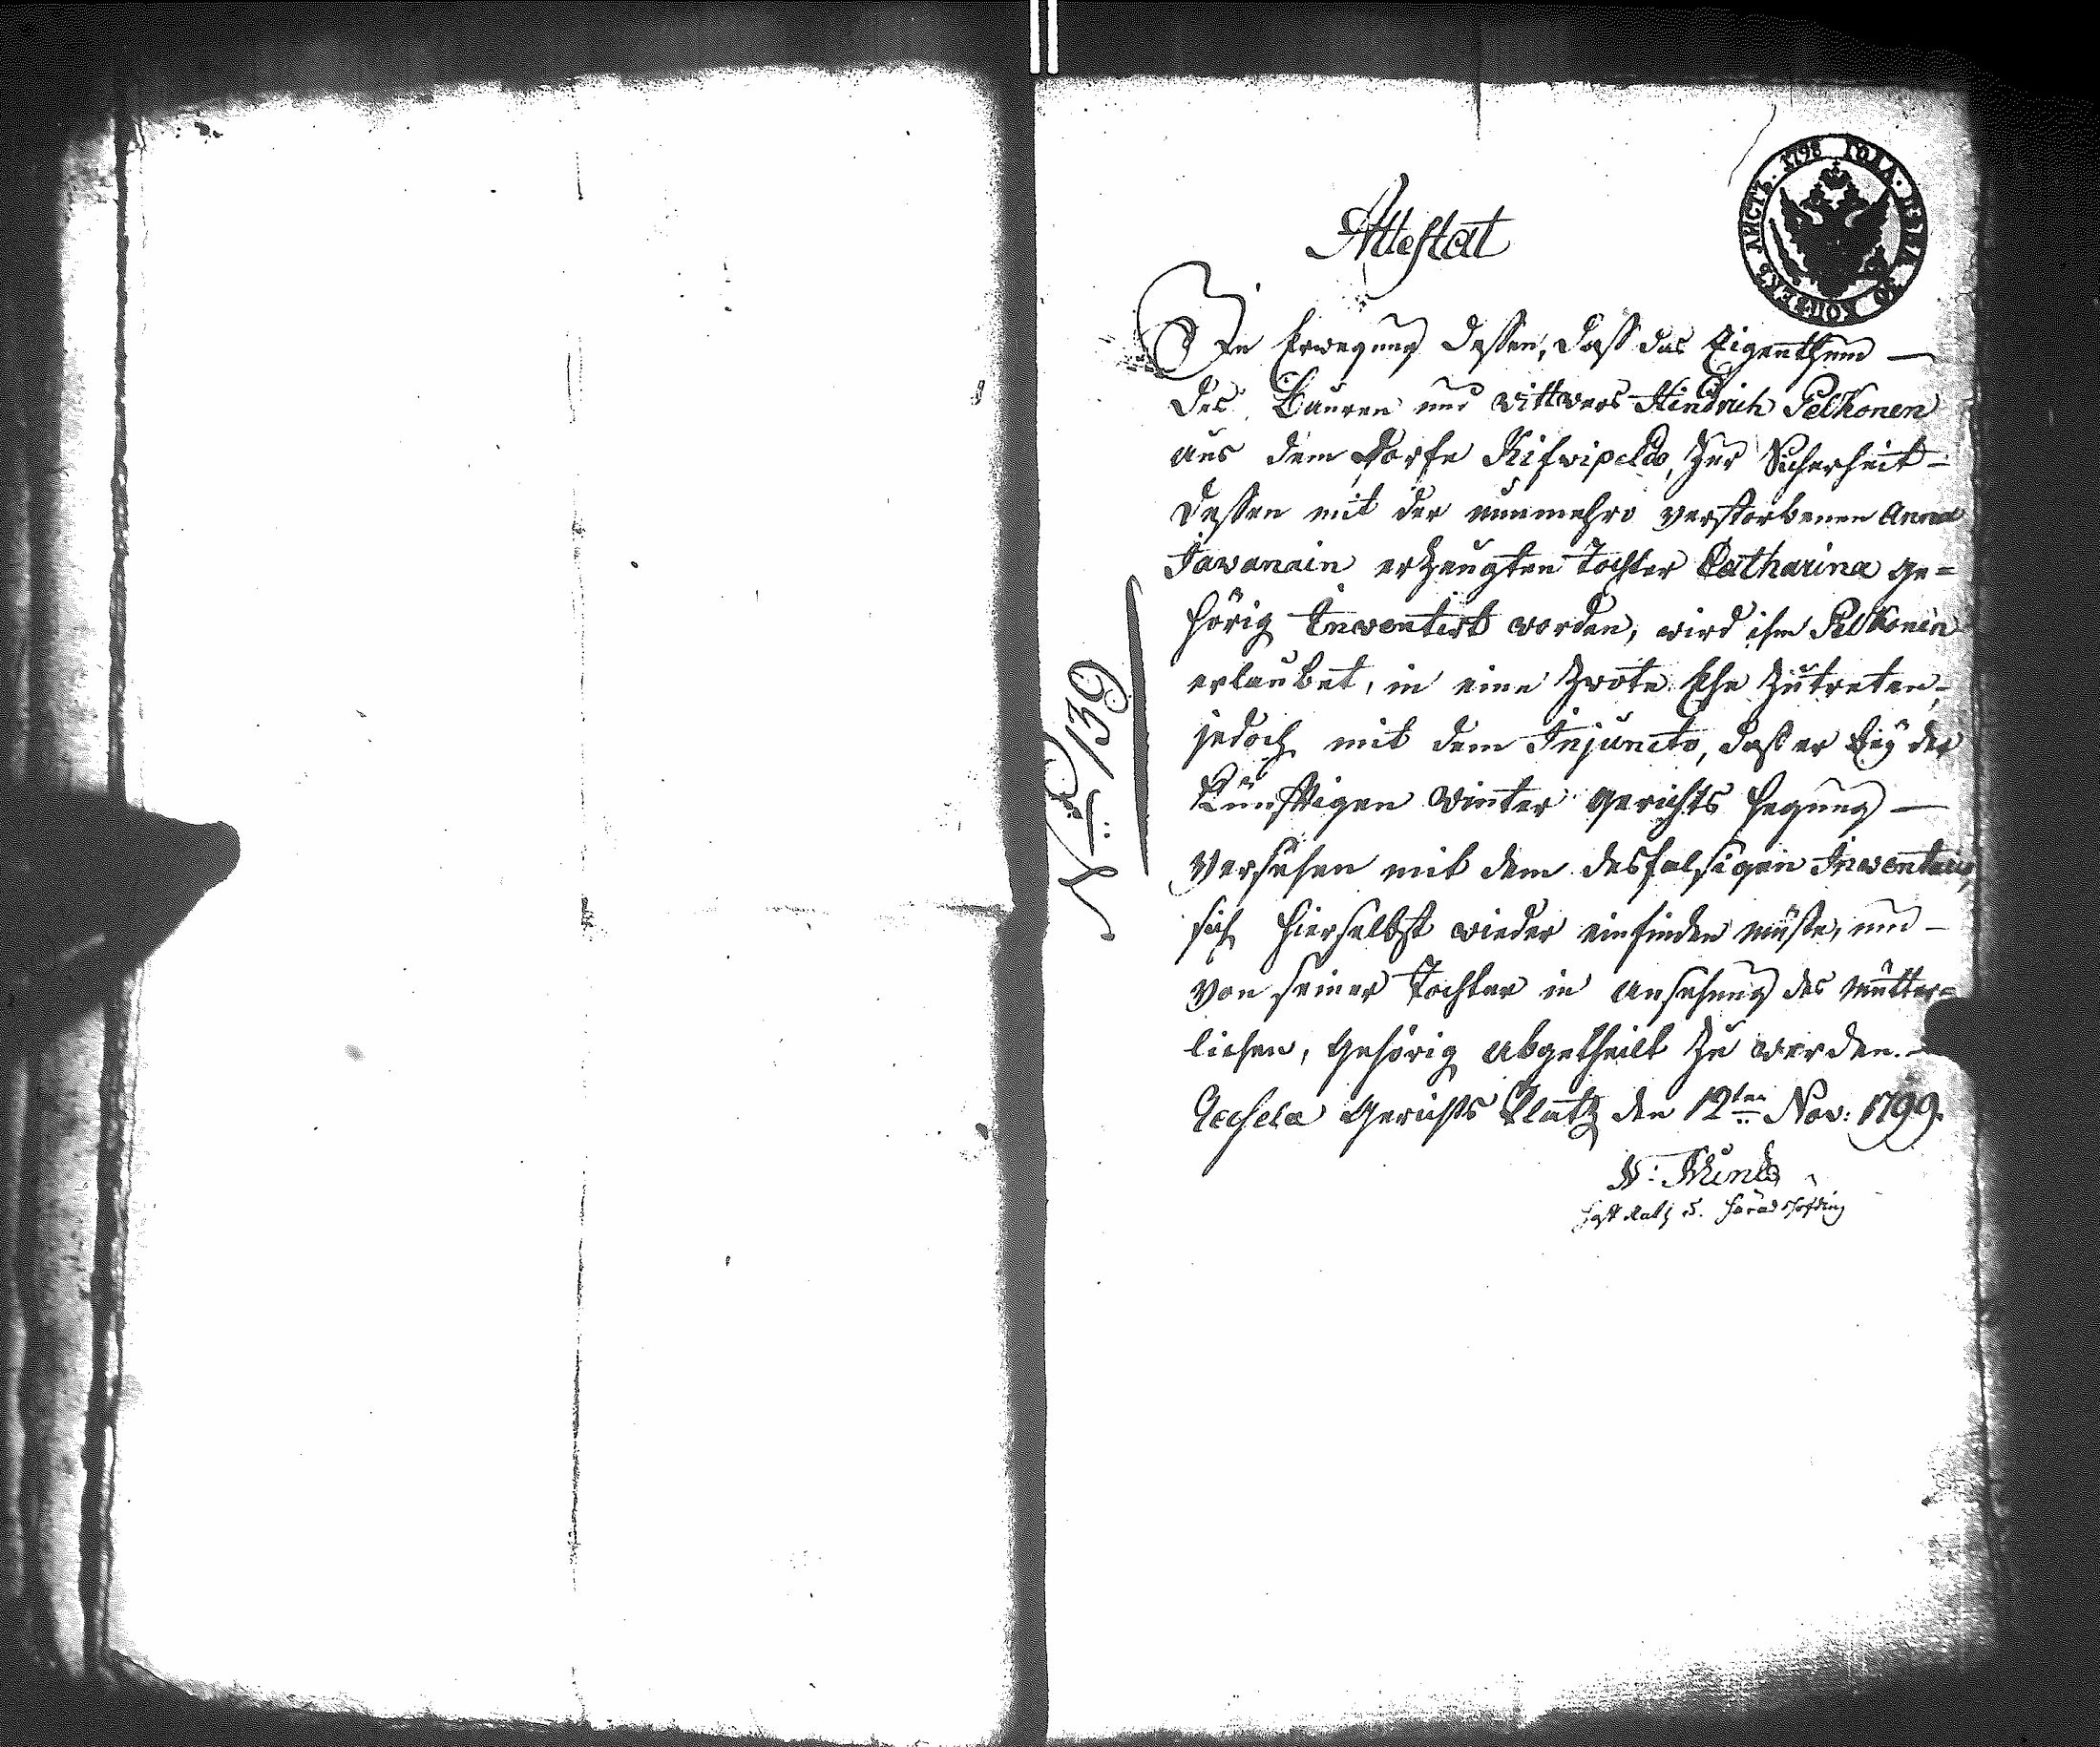 1798 ГОДА. ЦѢНА 30 КОПѢЕКЪ ЛИСТЪ.
Attestat
In Erwegung dessen, dass das Eigenthum —
des Bauren und Wittwers Hindrich Pelkonen
aus dem Dorfe Kifwipeldo, zur Sicherheit —
dessen mit der nunmehro verstorbenen Anna
Tawanain erzeugten Tochter Catharina ge=
hörig Inventirt worden, wird ihm Pelkonen
erlaubet, in eine zwote Ehe zutreten,
jedoch mit dem Injuncto, daß er beÿ der
Künfftigen Winter Gerichts hegung —
versehen mit dem desfalsigen Inventario,
sich hierselbst wieder einfinden müße, um —
von seiner Tochter in ansehung des Mütter=
lichen, gehörig abgetheilt zu werden. —
Gerichts Platz den 12ten Nov: 1799.
Häradshöfding
N: 139